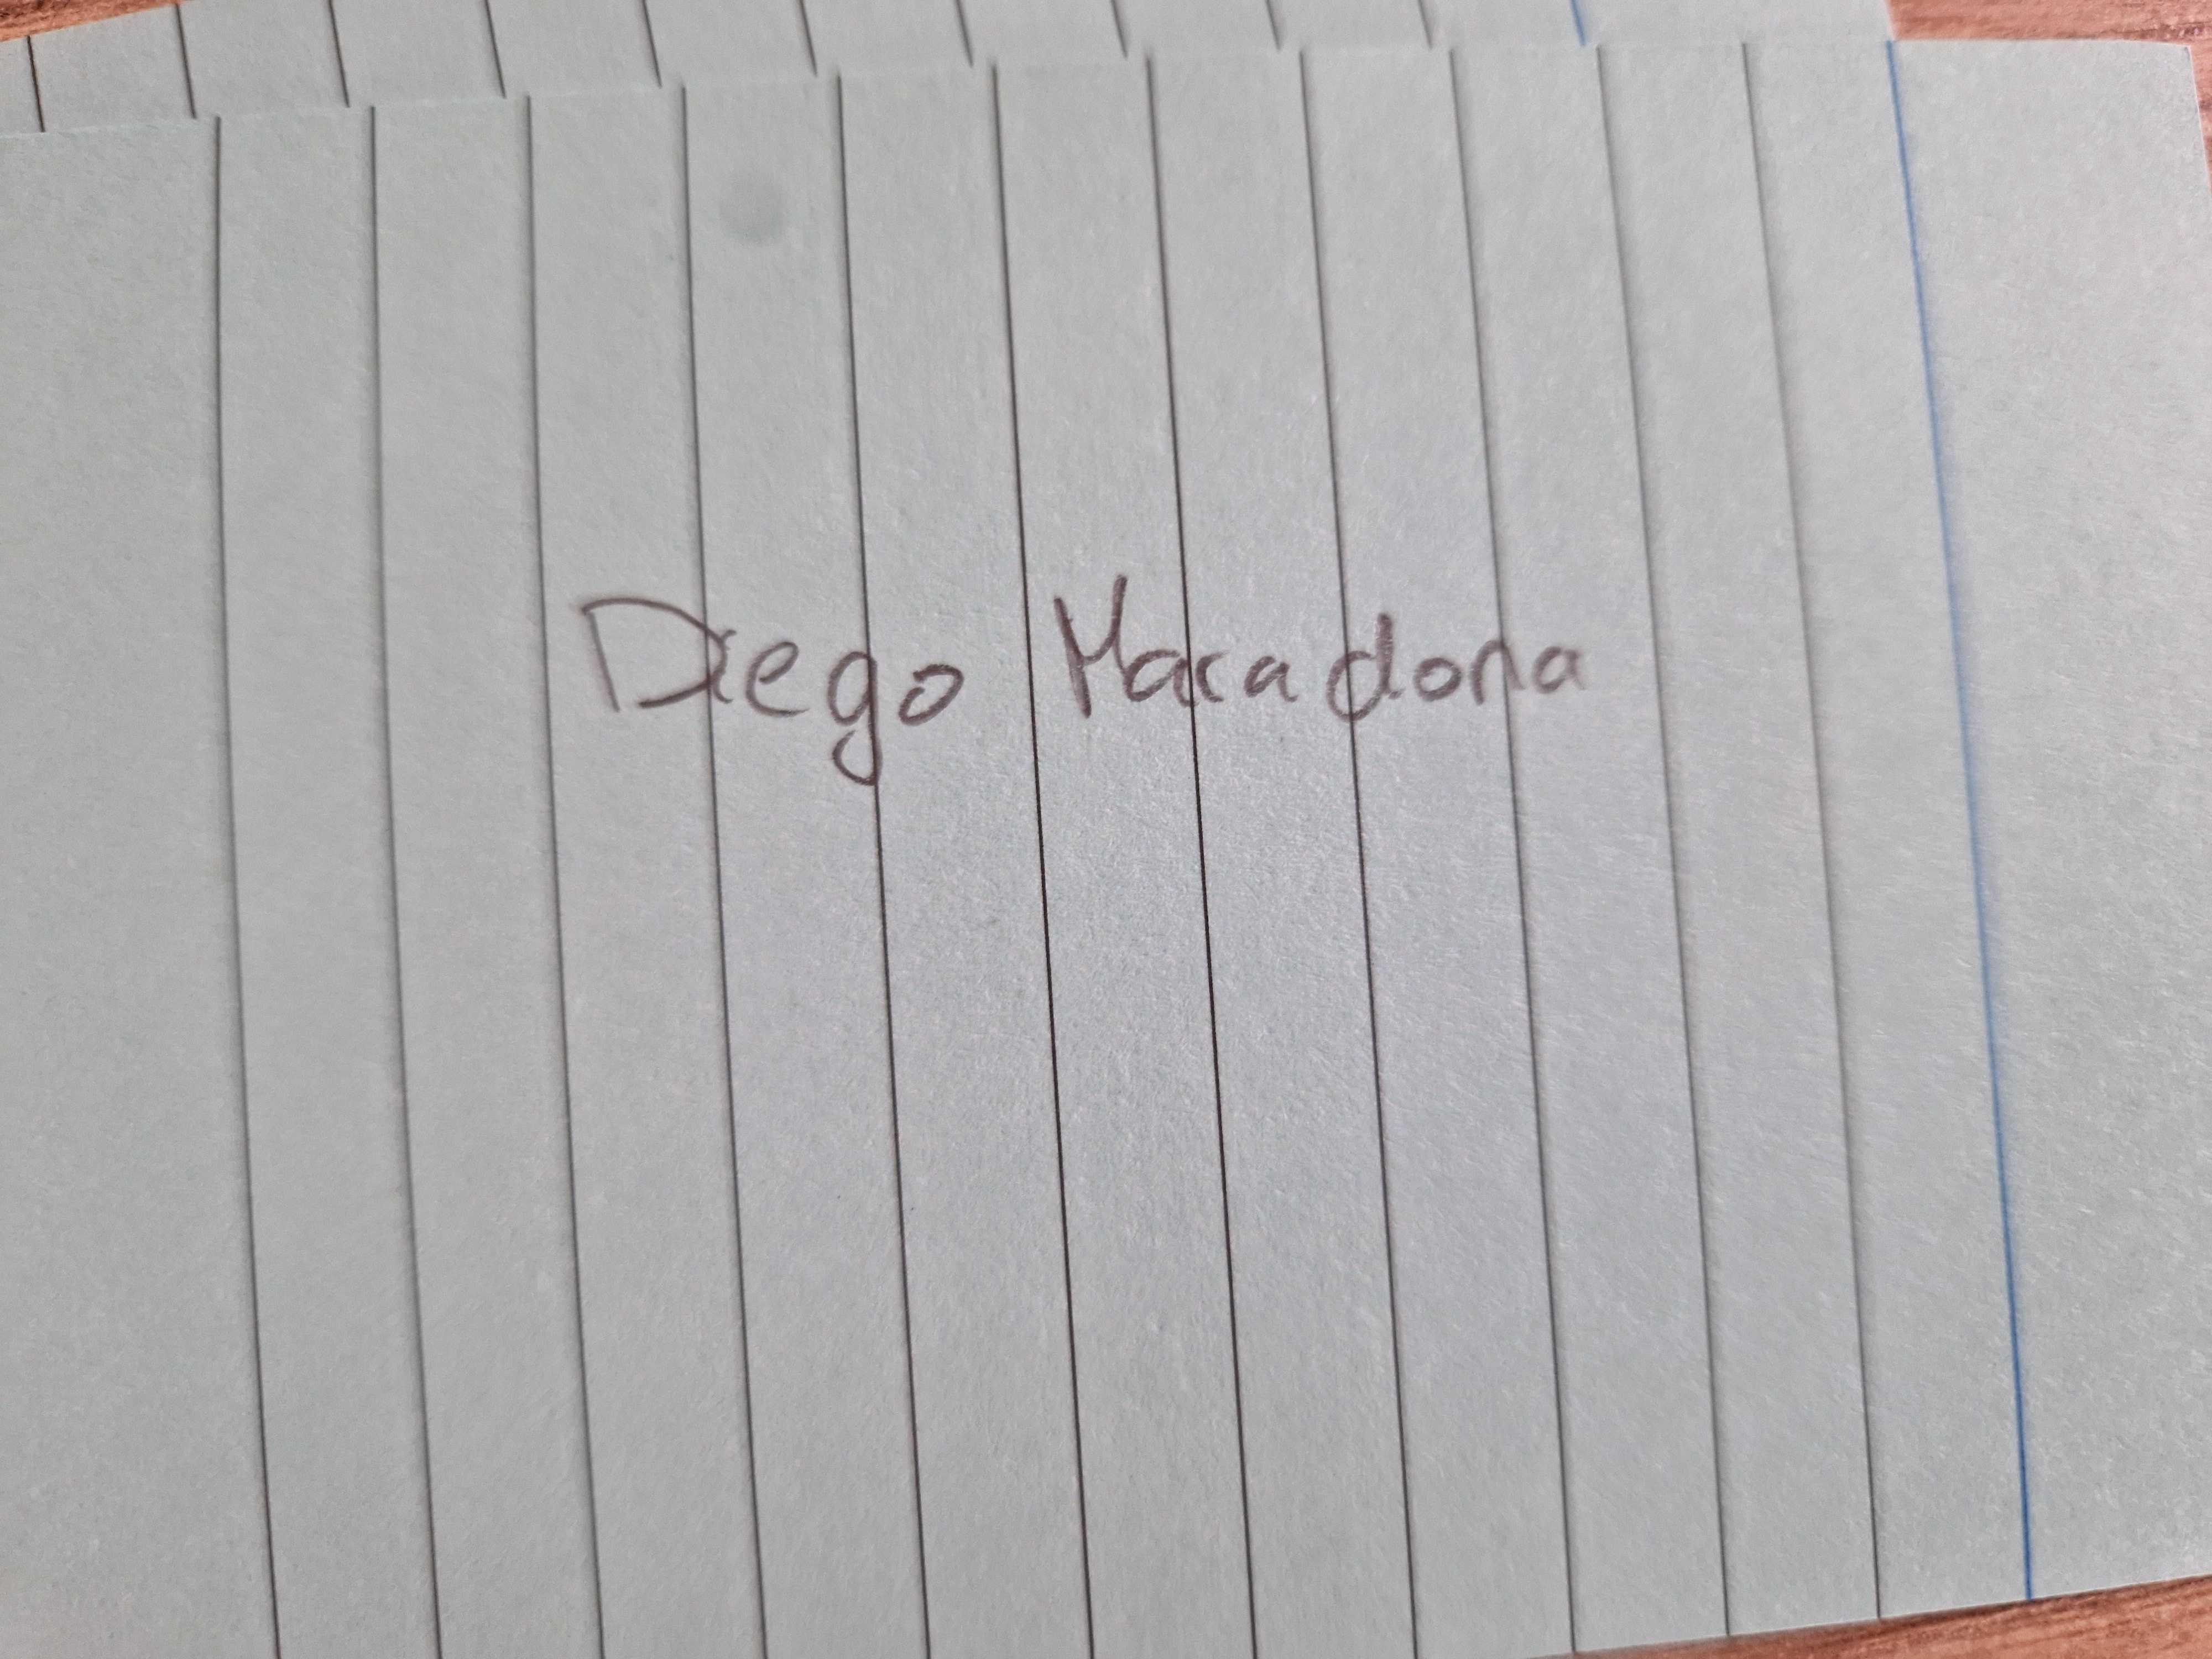 Diego Maradona